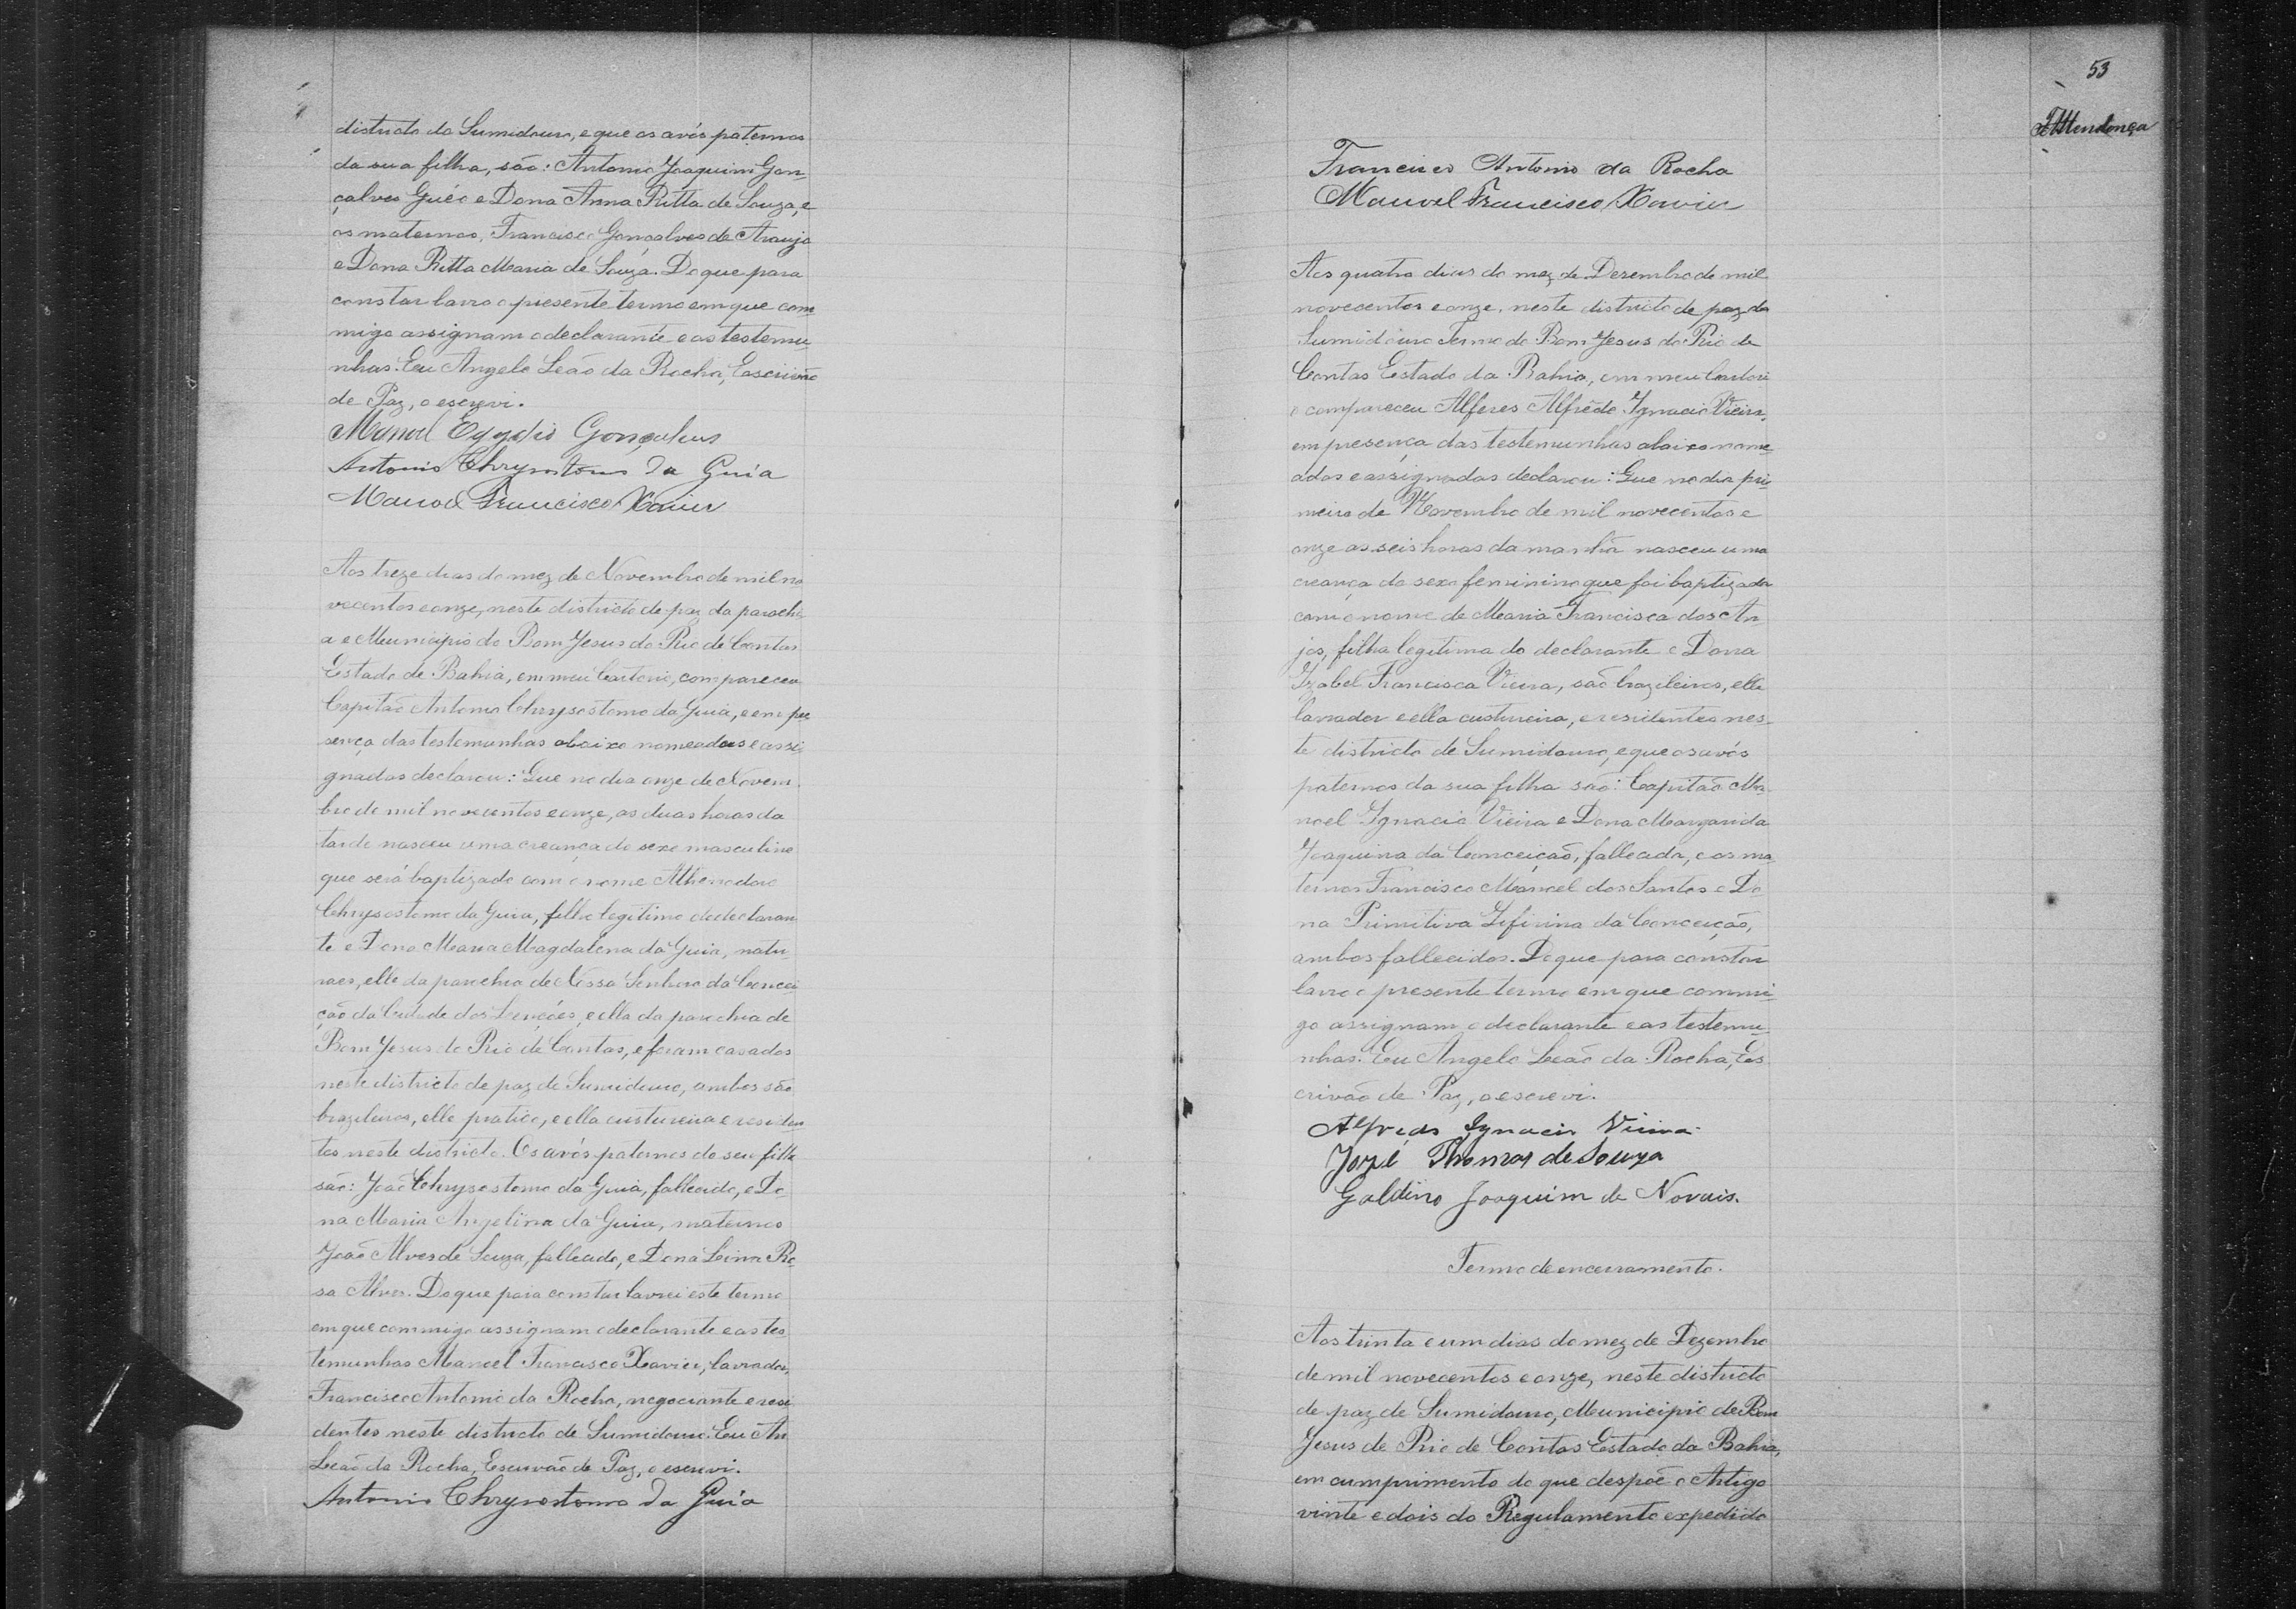 districto do Sumidouro, e que os avós paternos
da sua filha, são: Antonio Joaquim Gon-
çalves Guéo e Dona Anna Ritta de Souza, e
os maternos, Francisco Gonçalves de Araujo
e Dona Ritta Maria de Souza. Do que para
constar lavro o presente termo em que com
migo assignam o declarante e as testemu-
nhas. Eu Angelo Leão da Rocha, Escrivão
de Paz, o escrevi.
Manoel Egydio Gonçalves
Antonio Chrysostomo da Guia
Manoel Francisco Xavier
Aos treze dias do mez de Novembro de mil no
vecentos e onze, neste districto de paz da parochi-
a e Municipio do Bom Jesus do Rio de Contas
Estado da Bahia, em meu Cartorio, compareceu
Capitão Antonio Chrysostomo da Guia, e em pre
sença das testemunhas abaixo nomeadas e assi-
gnadas declarou: Que no dia onze de Novem-
bro de mil novecentos e onze, as duas horas da
tarde nasceu uma creança do sexo masculino
que será baptizado com o nome Athenodoro
Chrysostomo da Guia, filho legitimo do declaran
te e Dona Maria Magdalena da Guia, natu-
raes, elle da parochia de Nossa Senhora da Concei
ção da Cidade dos Lençóes, e ella da parochia de
Bom Jesus do Rio de Contas, e foram casados
neste districto de paz de Sumidouro, ambos são
brazileiros, elle pratico, e ella custureira e residen
tes neste districto. Os avós paternos do seu filho
são: João Chrysostomo da Guia, fallecido, e Do-
na Maria Angelina da Guia, maternos
João Alves de Souza, fallecido, e Dona Ro-
sa Alves. Do que para constar lavrei este termo
em que commigo assignam o declarante e as tes
temunhas Manoel Francisco Xavier, lavrador,
Francisco Antonio da Rocha, negociante e resi
dentes neste districto de Sumidouro. Eu An
Leão da Rocha, Escrivão de Paz, o escrevi.
Antonio Chrysostomo da Guia
53
Mendonça
Francisco Antonio da Rocha
Manoel Francisco Xavier
Aos quatro dias do mez de Desembro de mil
novecentos e onze, neste districto de paz do
Sumidouro Termo do Bom Jesus do Rio de
Contas Estado da Bahia, em meu Cartori
o compareceu Alferes Alfredo Ignacio Vieira,
em presença das testemunhas abaixo nome-
adas e assignadas declarou: Que no dia pri-
meiro de Novembro de mil novecentos e
onze as seis horas da manhã nasceu uma
creança do sexo feminino que foi baptizada
com o nome de Maria Francisca dos An-
jos, filha legitima do declarante e Dona
Izabel Francisca Vieira, são brazileiros, elle
lavrador e ella custureira, e residentes nes-
te districto de Sumidouro, e que os avós
paternos da sua filha são: Capitão Ma-
noel Ignacio Vieira e Dona Margarida
Joaquina da Conceição, fallecida, e os ma
ternos Francisco Manoel dos Santos e Do
na Primitiva Zifirina da Conceição,
ambos fallecidos. Do que para constar
lavro o presente termo em que commi-
go assignam o declarante e as testemu-
nhas. Eu Angelo Leão da Rocha, Es
crivão de Paz, o escrevi.
Alfredo Ignacio Vieira
José Thomas de Souza
Galdino Joaquim de Novais.
Termo de encerramento.
Aos trinta e um dias do mez de Dezembro
de mil novecentos e onze, neste districto
de paz de Sumidouro, Municipio de Bom
Jesus de Rio de Contas Estado da Bahia,
em cumprimento do que despoê o Artigo
vinte e dois do Regulamento expedido